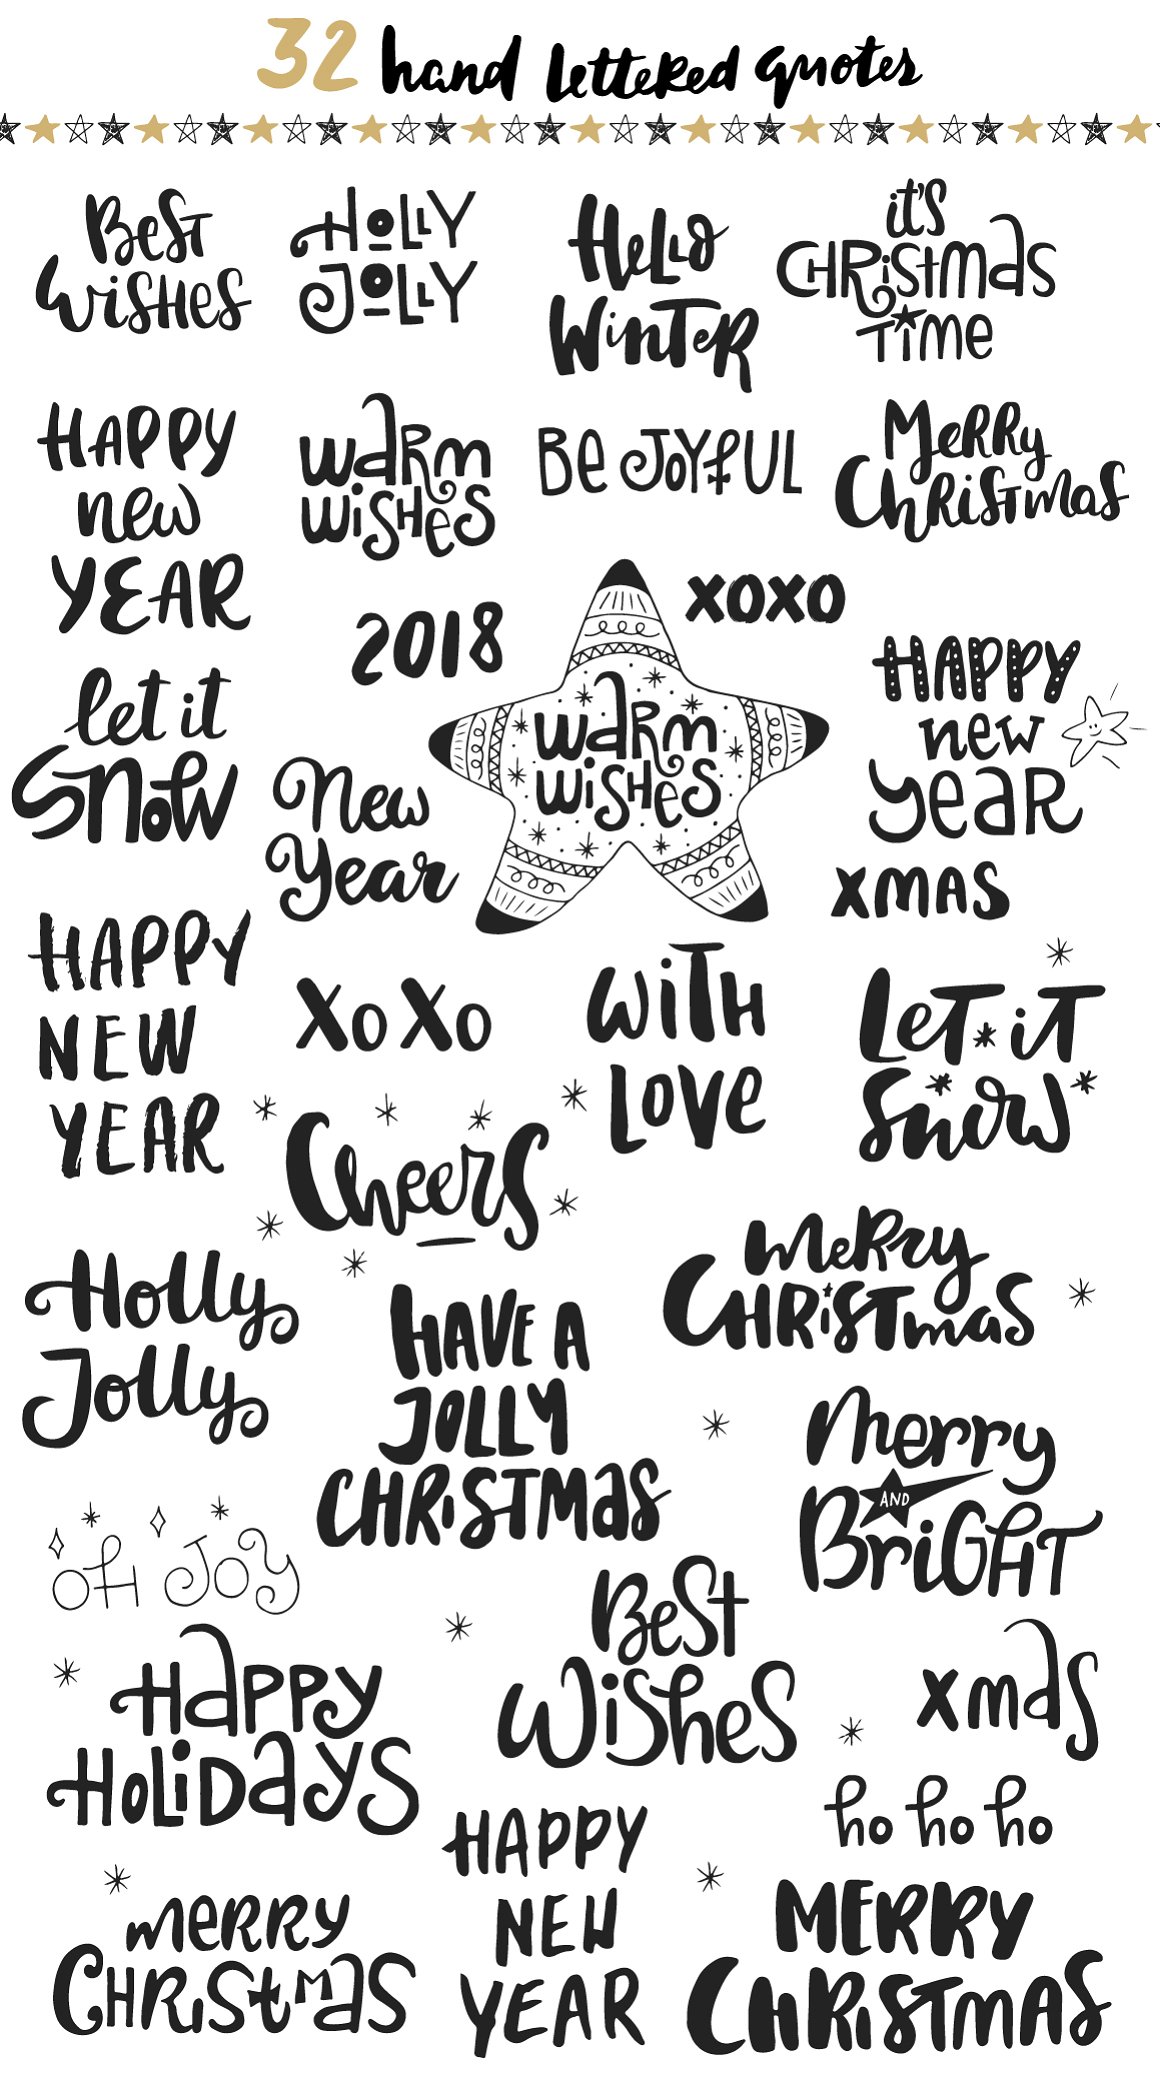 32 hand Lettered quotes
Best
Wishes
Holly
Jolly
Hello
Winter
it's
Christmas
Time
Happy
new
Year
Warm
Wishes
Be Joyful
Merry
Christmas
2018
XOXO
Warm
Wishes
Happy
new
Year
let it
Snow
New
Year
XMAS
HAPPY
NEW
YEAR
XoXo
With
Love
Let it
Snow
Cheers
Merry
Christmas
Holly
Jolly
HAVE A
JOLLY
CHRISTMAS
Merry
AND
Bright
Oh Joy
Best
Wishes
Happy
Holidays
xmas
ho ho ho
HAPPY
NEW
YEAR
merry
Christmas
MERRY
CHRISTMAS